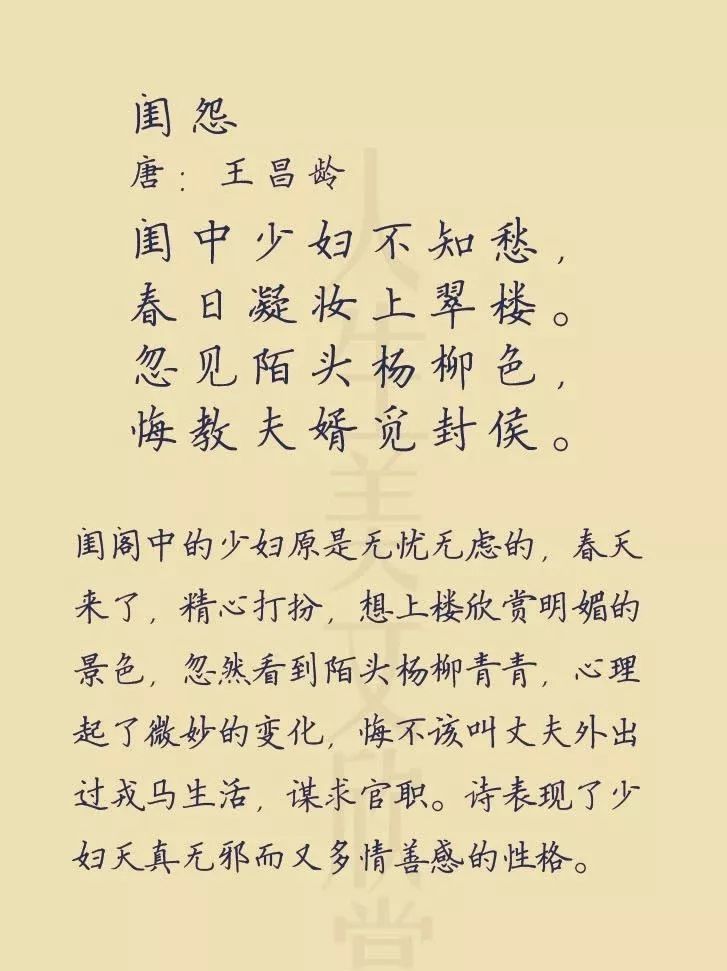 闺怨
唐：王昌龄
闺中少妇不知愁，
春日凝妆上翠楼。
忽见陌头杨柳色，
悔教夫婿觅封侯。
闺阁中的少妇原是无忧无虑的，春天
来了，精心打扮，想上楼欣赏明媚的
景色，忽然看到陌头杨柳青青，心理
起了微妙的变化，悔不该叫丈夫外出
过戎马生活，谋求官职。诗表现了少
妇天真无邪而又多情善感的性格。